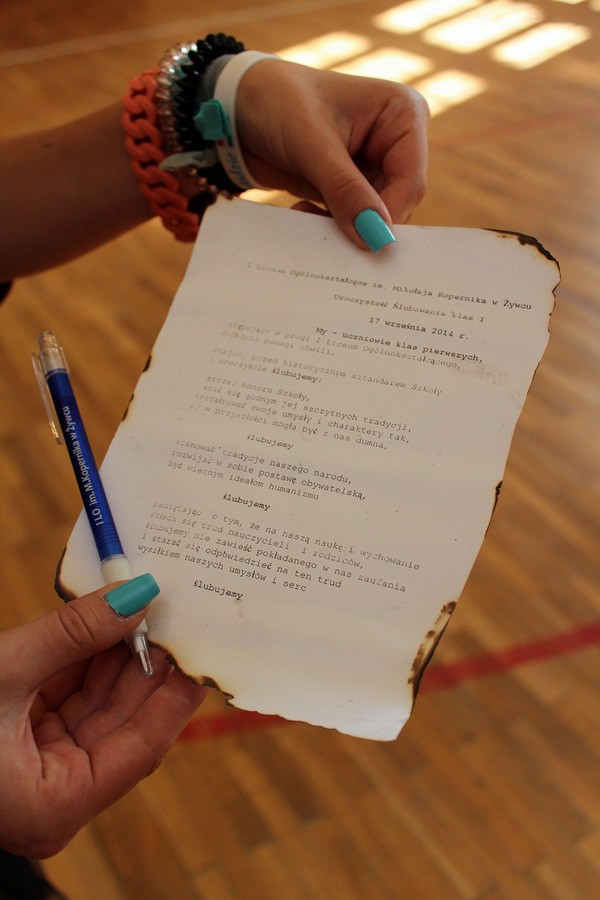 I Liceum Ogólnokształcące im. Mikołaja Kopernika w Żywcu
Uroczystość Ślubowania klas I
17 września 2014 r.
My - uczniowie klas pierwszych,
wstępujący w progi I Liceum Ogólnokształcącego,
powagi chwili,
stojąc przed historycznym sztandarem Szkoły
i uroczyście ślubujemy:
strzec honoru Szkoły,
stać się godnym jej szczytnych tradycji,
kształtować swoje umysły i charaktery tak,
by w przyszłości mogła być z nas dumna,
ślubujemy
szanować tradycje naszego narodu,
rozwijać w sobie postawę obywatelską,
być wiernym ideałom humanizmu
ślubujemy
pamiętając o tym, że na naszą naukę i wychowanie
składa się trud nauczycieli i rodziców,
ślubujemy nie zawieść pokładanego w nas zaufania
i starać się odpowiedzieć na ten trud
wysiłkiem naszych umysłów i serc
ślubujemy
I LO im.M.Kopernika w Żywcu